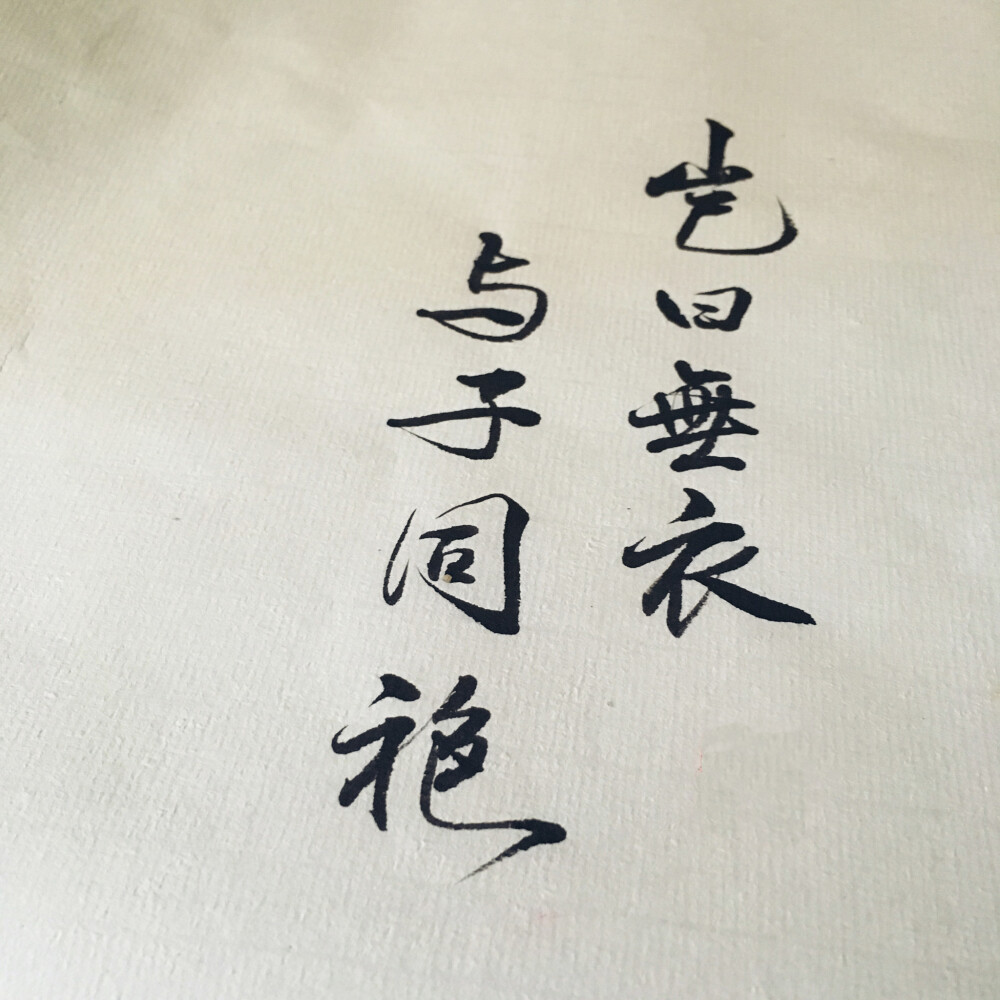 岂曰無衣
与子同袍